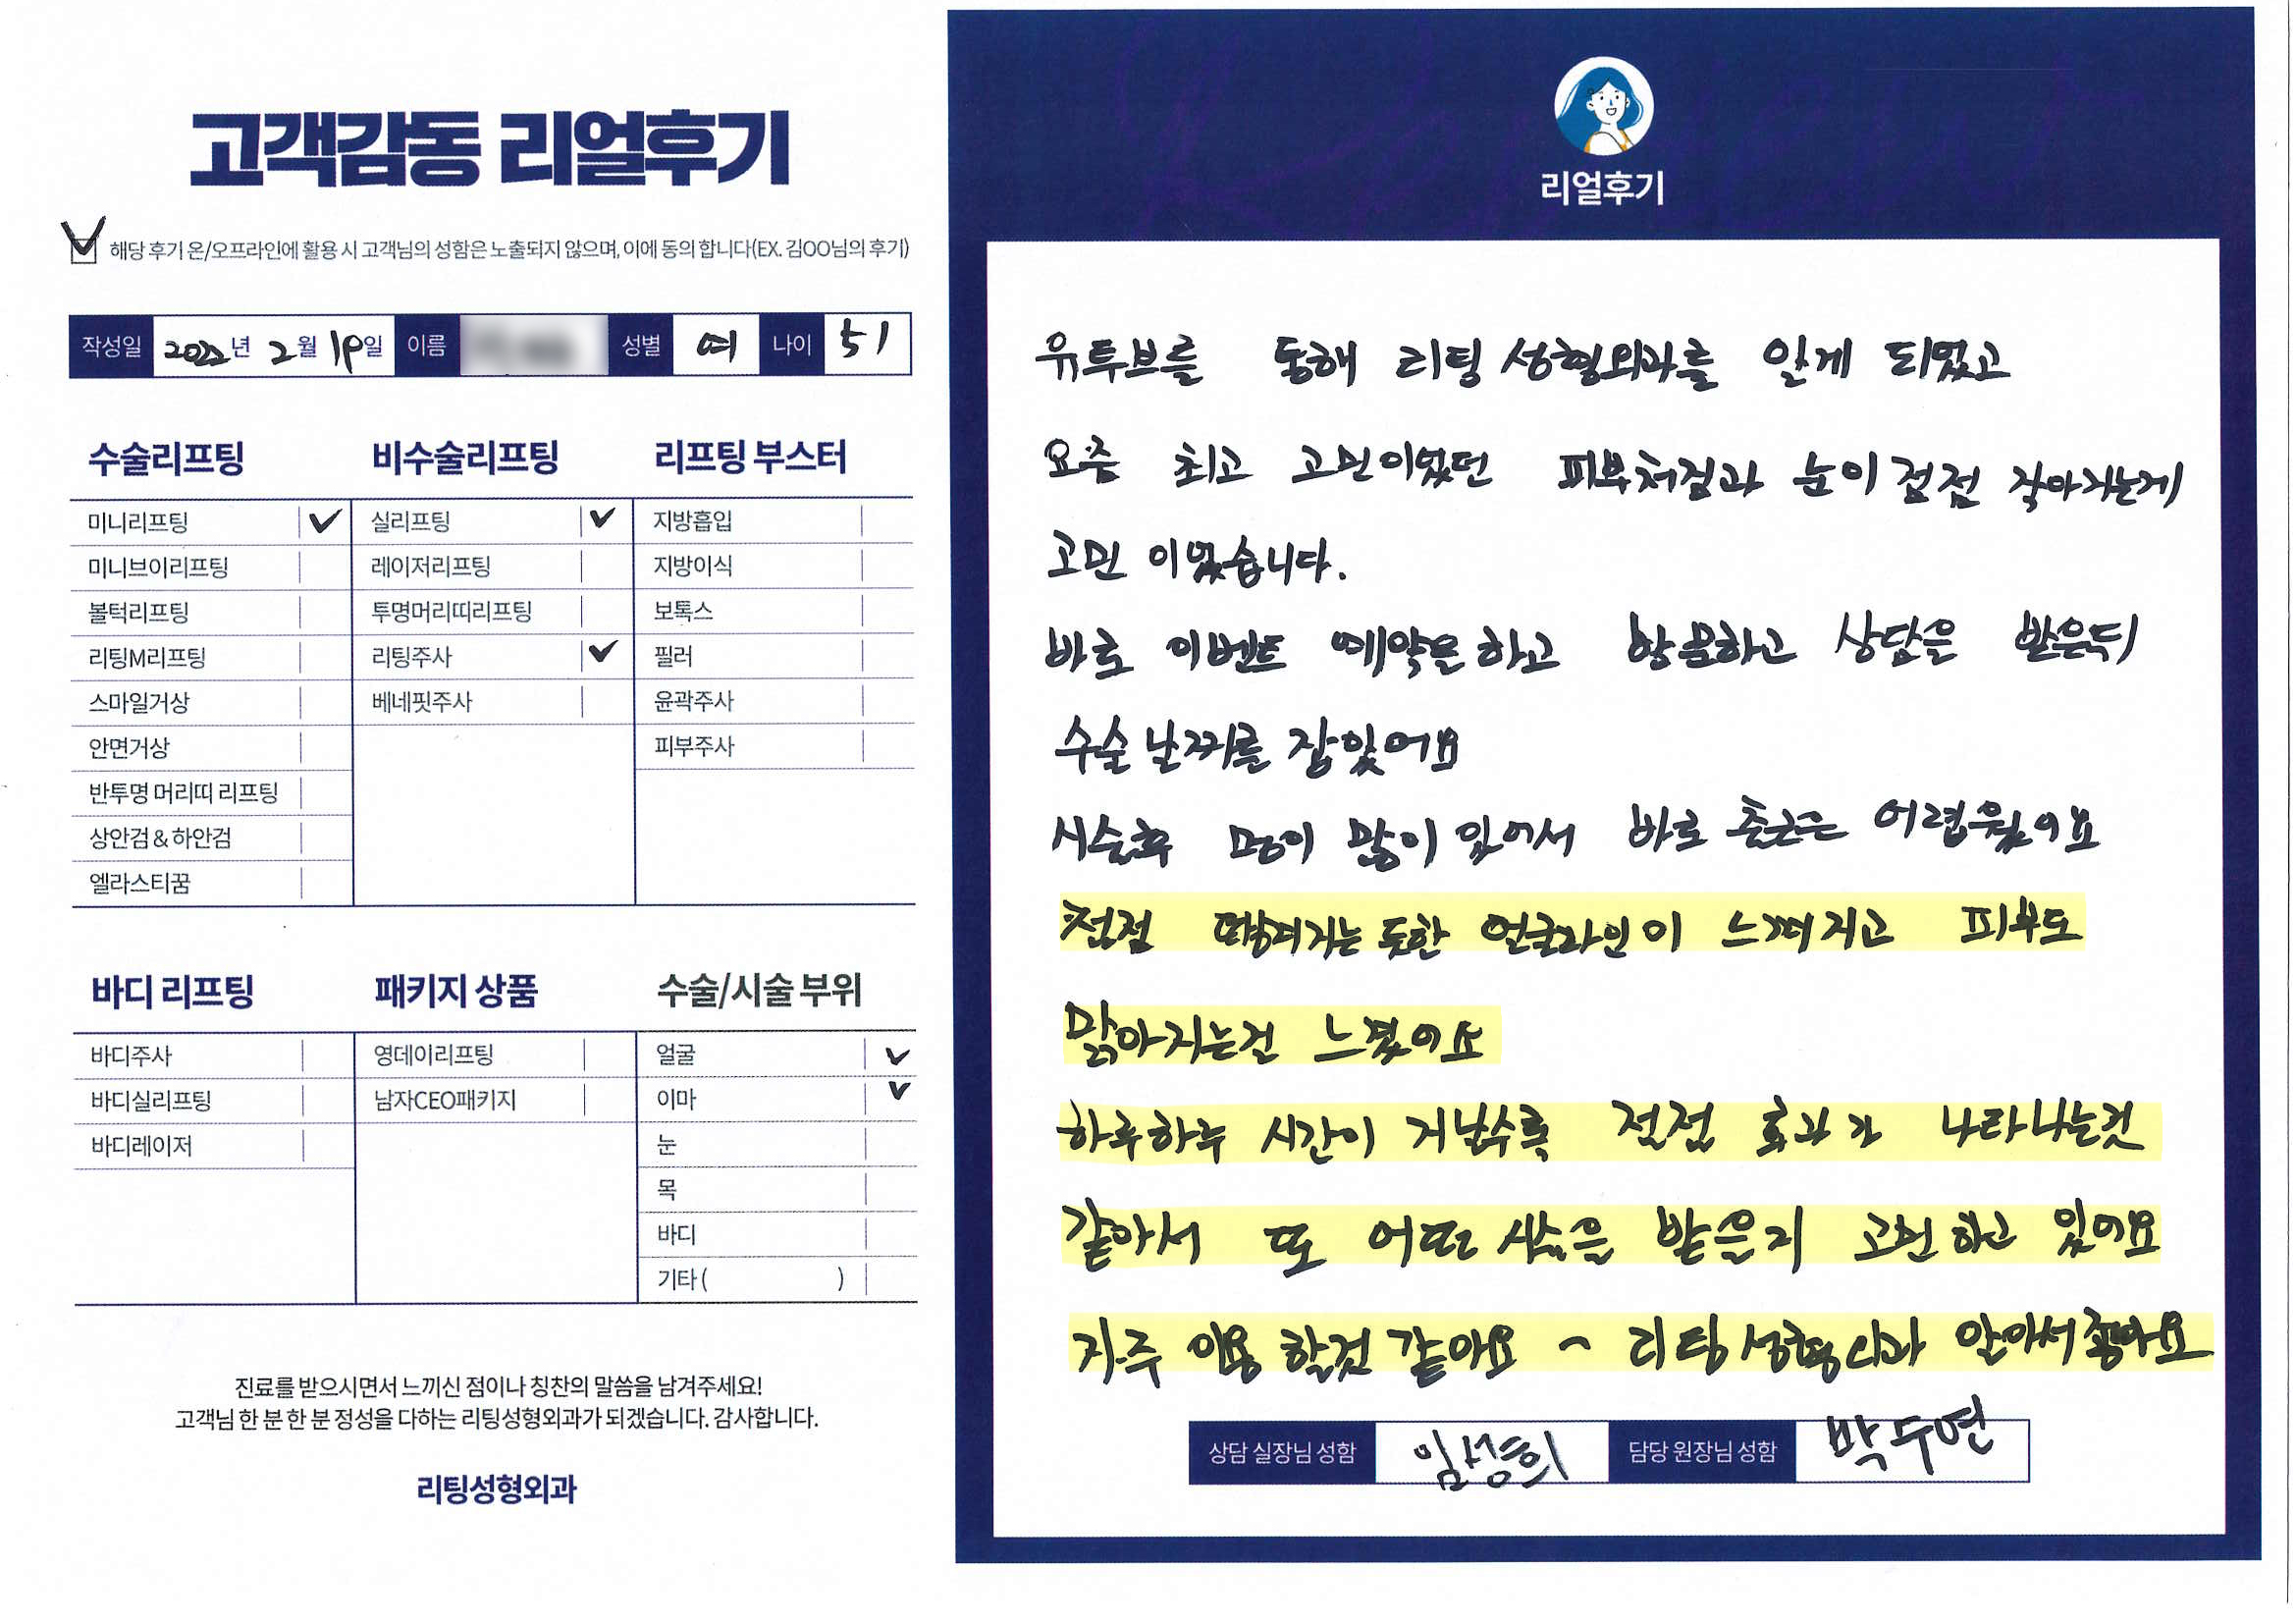 고객감동 리얼후기
해당 후기 온/오프라인에 활용 시 고객님의 성함은 노출되지 않으며, 이에 동의 합니다(EX. 김OO님의 후기)
작성일 2022년 2월 19일 이름 성별 여 나이 51
수술리프팅
미니리프팅 ✓
미니브이리프팅
볼턱리프팅
리팅M리프팅
스마일거상
안면거상
반투명 머리띠 리프팅
상안검 & 하안검
엘라스티꿈
비수술리프팅
실리프팅 ✓
레이저리프팅
투명머리띠리프팅
리팅주사 ✓
베네핏주사
리프팅 부스터
지방흡입
지방이식
보톡스
필러
윤곽주사
피부주사
바디 리프팅
바디주사
바디실리프팅
바디레이저
패키지 상품
영데이리프팅
남자CEO패키지
수술/시술 부위
얼굴 ✓
이마 ✓
눈
목
바디
기타 ( )
진료를 받으시면서 느끼신 점이나 칭찬의 말씀을 남겨주세요!
고객님 한 분 한 분 정성을 다하는 리팅성형외과가 되겠습니다. 감사합니다.
리팅성형외과
리얼후기
유투브를 통해 리팅성형외과를 알게 되었고
요즘 최고 고민이었던 피부처짐과 눈이 점점 작아지는게
고민 이었습니다.
바로 이벤트 예약을하고 방문하고 상담을 받은뒤
수술 날짜를 잡았어요
시술후 멍이 많이 있어서 바로 출근은 어려웠어요
점점 땡겨지는 듯한 얼굴라인이 느껴지고 피부도
맑아지는걸 느꼈어요
하루하루 시간이 지날수록 점점 효과가 나타나는것
같아서 또 어떤 시술을 받을지 고민하고 있어요
자주 이용 할것 같아요 ~ 리팅성형외과 알아서 좋아요
상담 실장님 성함 임성희 담당 원장님 성함 박수연